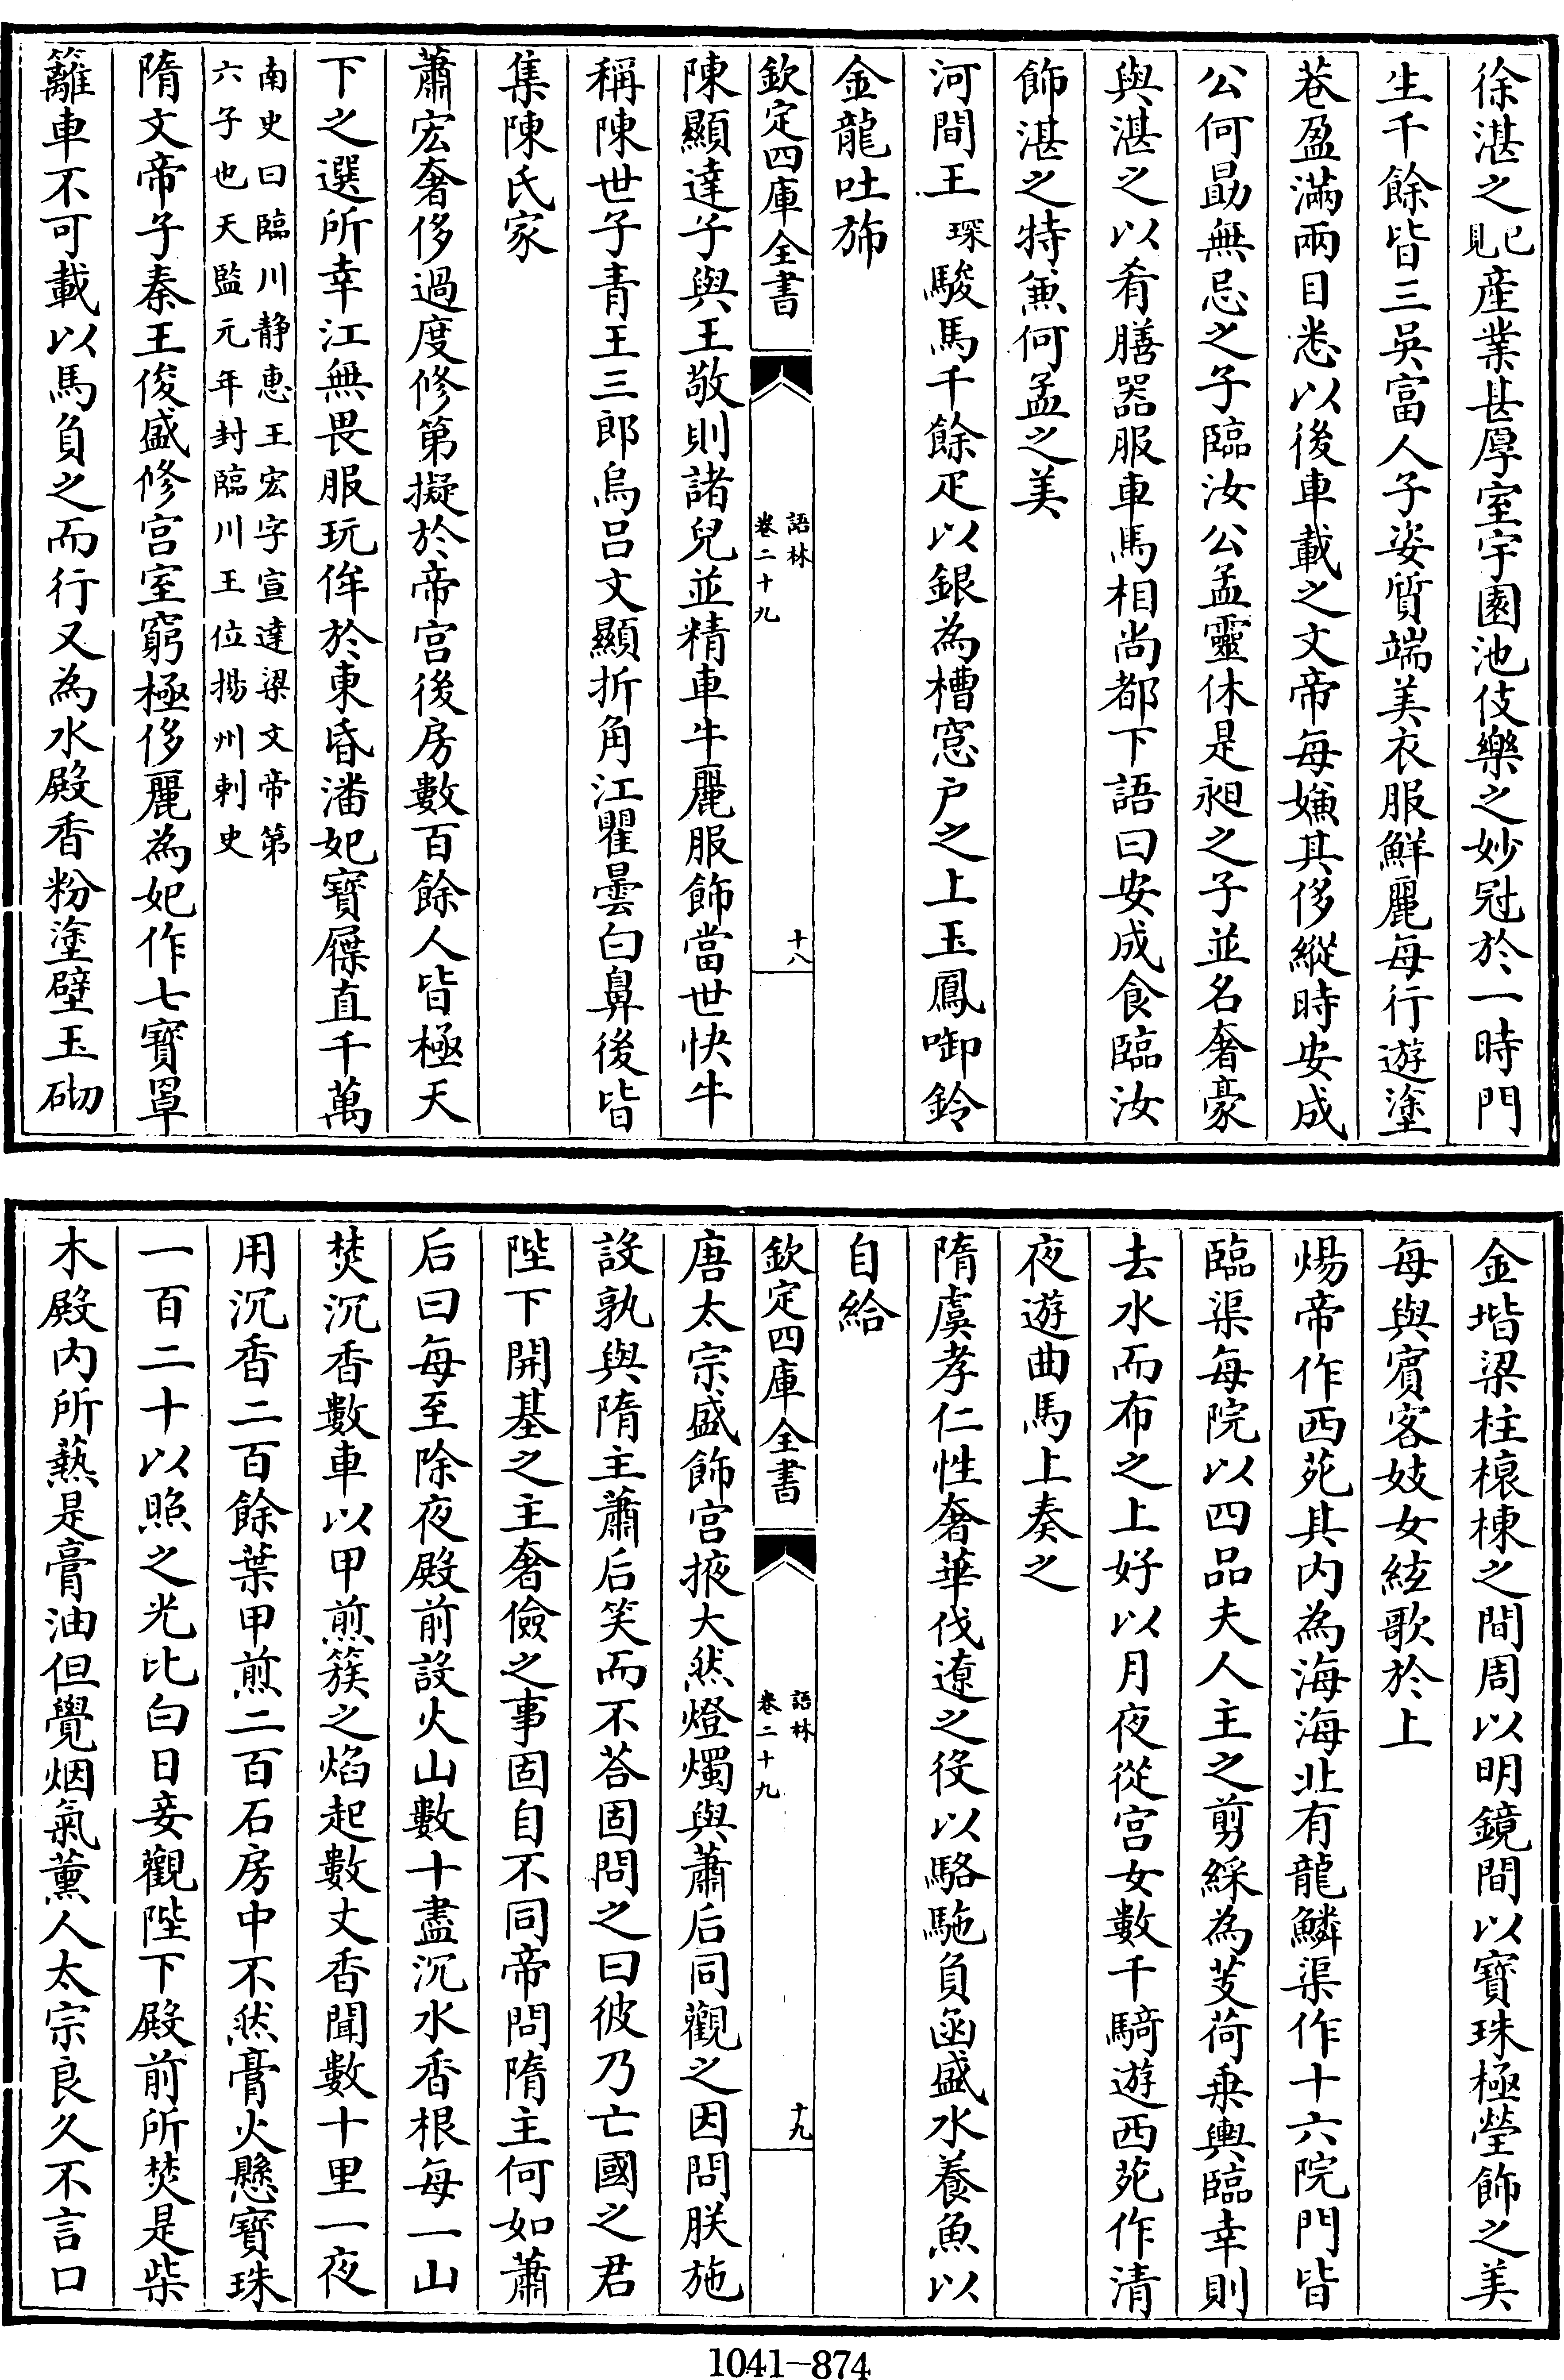 徐湛之已見產業甚厚室宇園池伎樂之妙冠於一時門
生千餘皆三吳富人子姿質端美衣服鮮麗每行遊塗
巷盈滿兩目悉以後車載之文帝每嫌其侈縱時安成
公何勗無忌之子臨汝公孟靈休是昶之子並名奢豪
與湛之以肴膳器服車馬相尚都下語曰安成食臨汝
飾湛之特兼何孟之美
河間王琛駿馬千餘疋以銀為槽窓户之上玉鳳啣鈴
金龍吐斾
欽定四庫全書
語林
卷二十九
十八
陳顯達子與王敬則諸兒並精車牛麗服飾當世快牛
稱陳世子青王三郎烏吕文顯折角江瞿曇白鼻後皆
集陳氏家
蕭宏奢侈過度修第擬於帝宫後房數百餘人皆極天
下之選所幸江無畏服玩侔於東昏潘妃寶屧直千萬
南史曰臨川静惠王宏字宣達梁文帝第
六子也天監元年封臨川王位揚州刺史
隋文帝子秦王俊盛修宫室窮極侈麗為妃作七寶罩
籬車不可載以馬負之而行又為水殿香粉塗壁玉砌
金堦梁柱榱棟之間周以明鏡間以寶珠極瑩飾之美
每與賓客妓女絃歌於上
煬帝作西苑其内為海海北有龍鱗渠作十六院門皆
臨渠每院以四品夫人主之剪綵為芰荷乗輿臨幸則
去水而布之上好以月夜從宫女數千騎遊西苑作清
夜遊曲馬上奏之
隋虞孝仁性奢華伐遼之役以駱駞負函盛水養魚以
自給
欽定四庫全書
語林
卷二十九
十九
唐太宗盛飾宫掖大然燈燭與蕭后同觀之因問朕施
設孰與隋主蕭后笑而不荅固問之曰彼乃亡國之君
陛下開基之主奢儉之事固自不同帝問隋主何如蕭
后曰每至除夜殿前設火山數十盡沉水香根每一山
焚沉香數車以甲煎簇之焰起數丈香聞數十里一夜
用沉香二百餘葉甲煎二百石房中不然膏火懸寶珠
一百二十以照之光比白日妾觀陛下殿前所焚是柴
木殿内所爇是膏油但覺烟氣薰人太宗良久不言口
1041-874